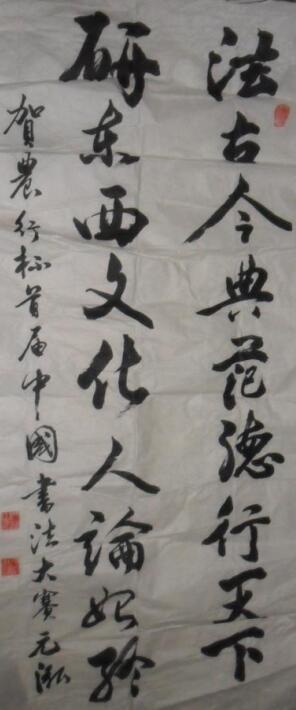 法古今典范德行天下
研东西文化人論始終
賀農行杯首届中國書法大赛元泓